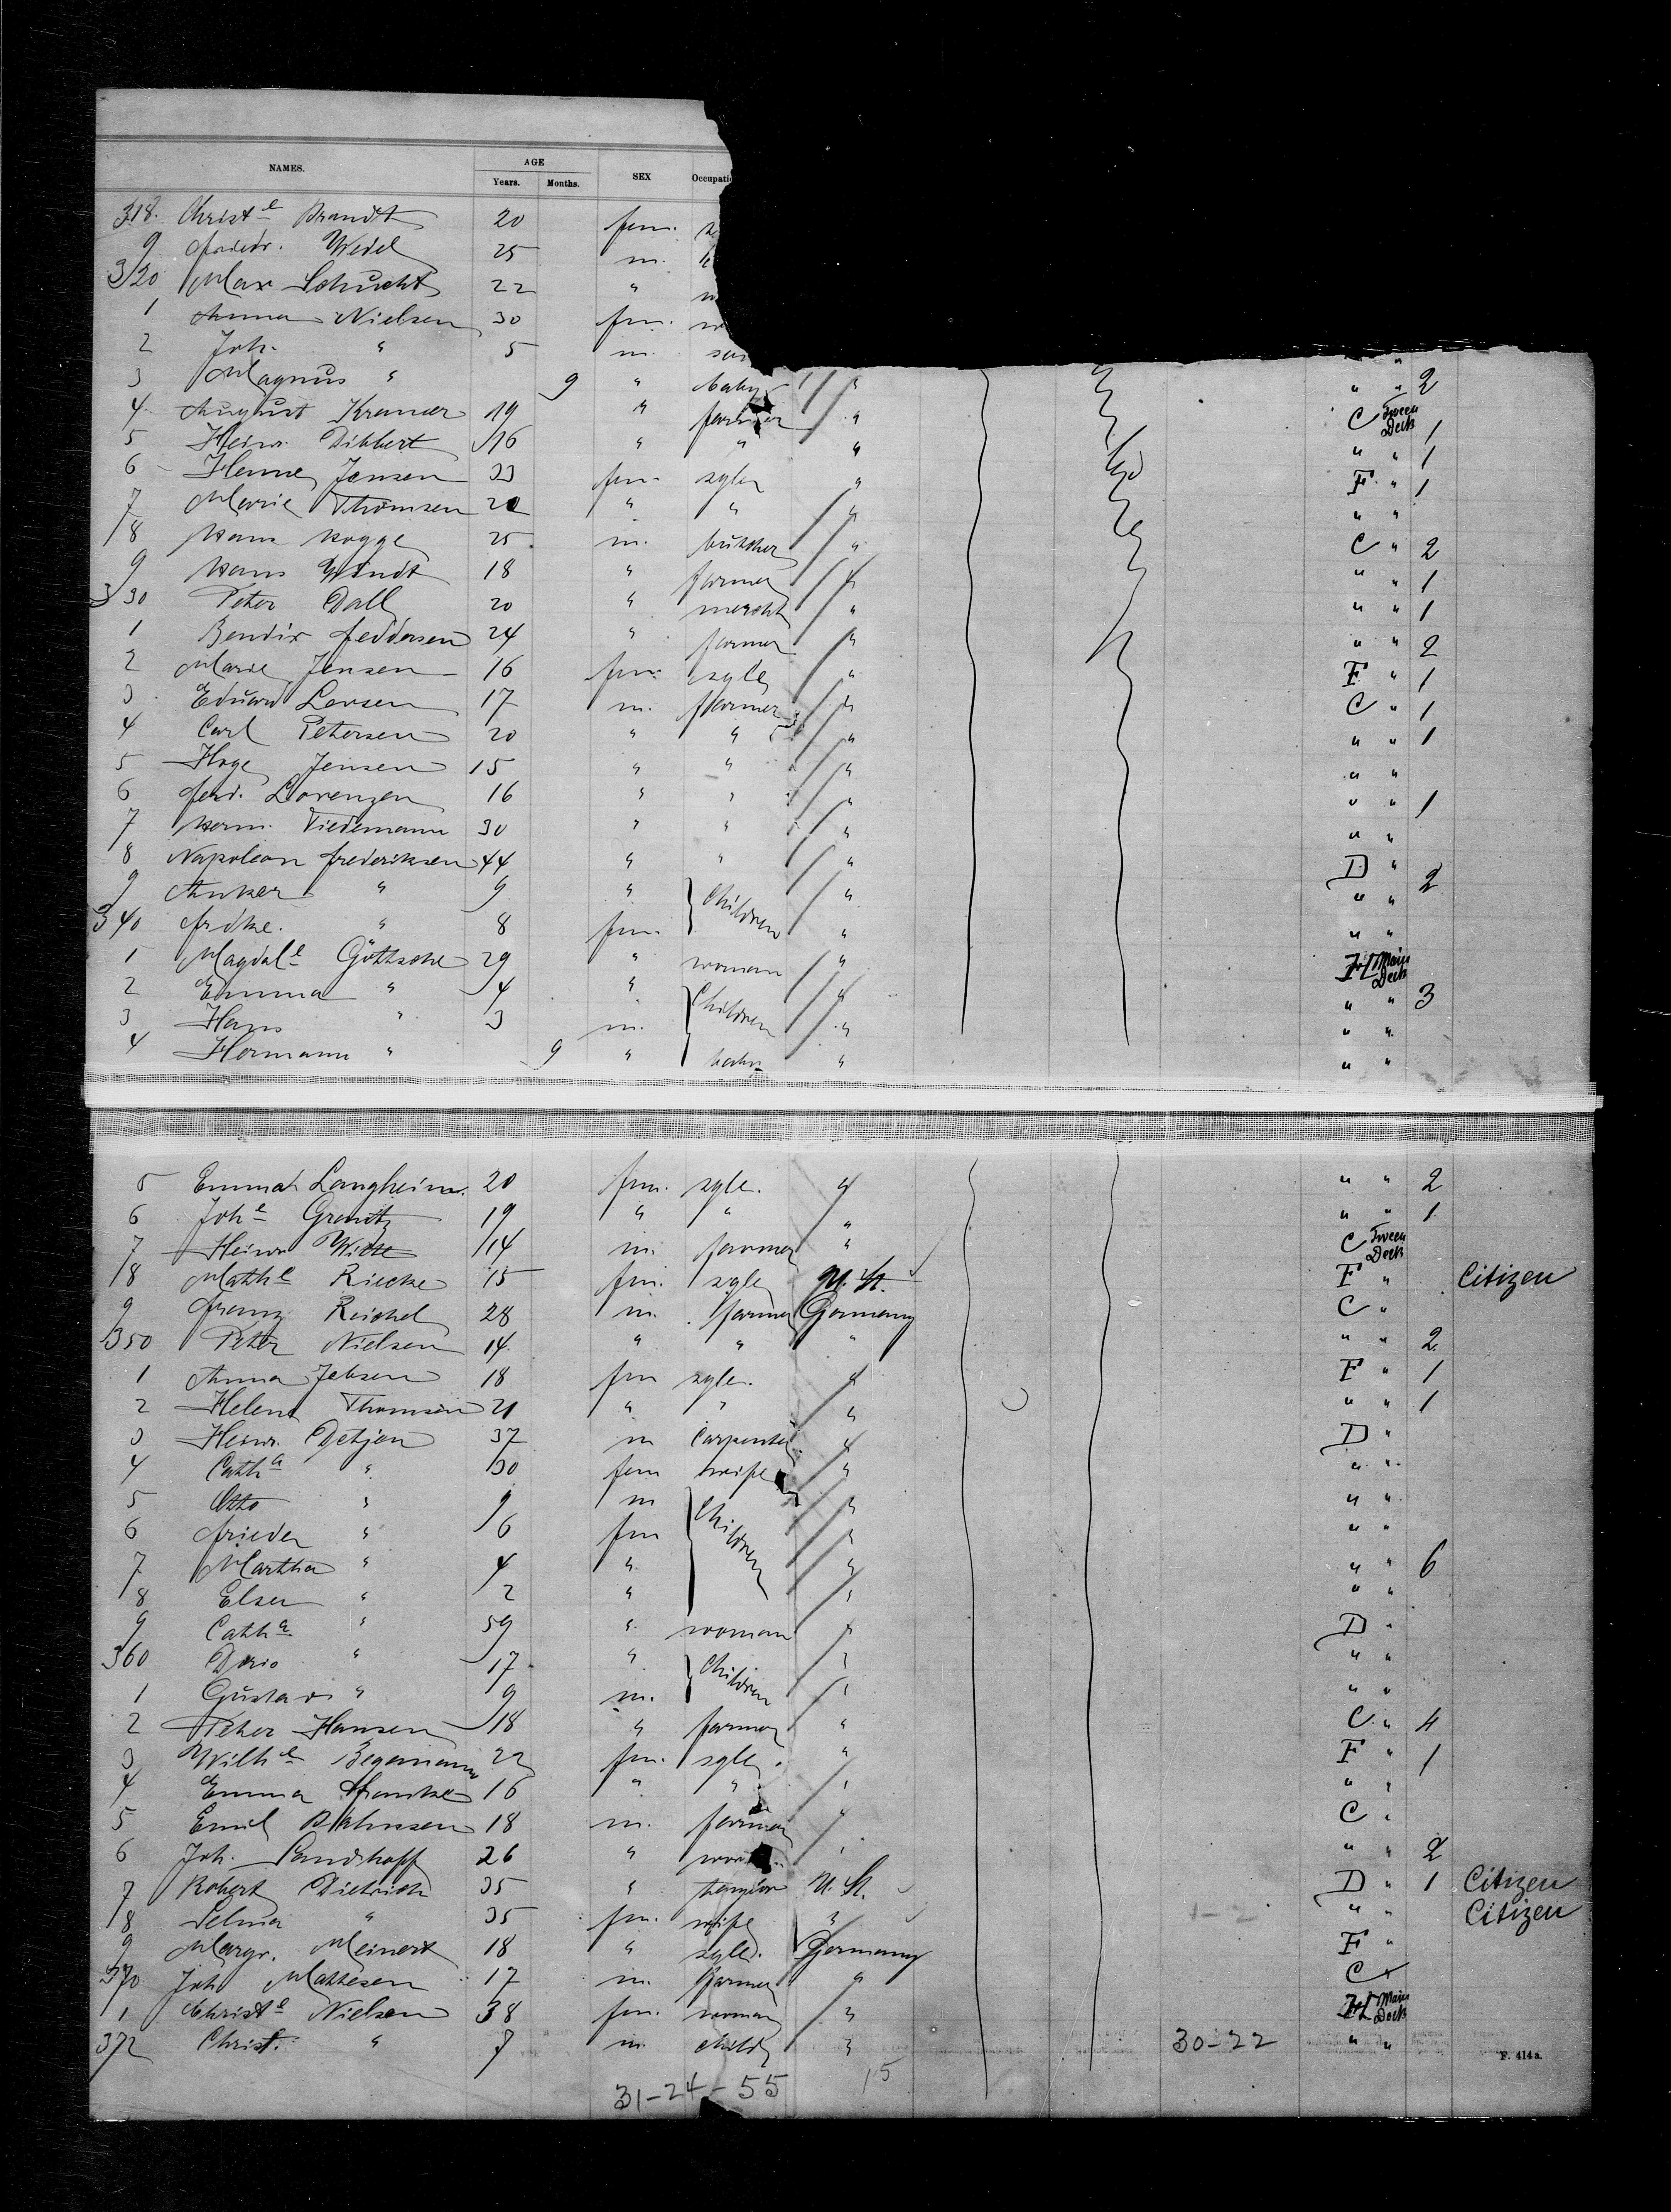 NAMES. AGE SEX Occupati
Years. Months.
318. Christe Brandt 20 fem.
9 Friedr. Wedel 25 m.
320 Max Schucht 22 "
1 Anna Nielsen 30 fm.
2 Joh. " 5 m. "
3 Magnus " 9 " baby " " " 2
4 August Kramer 19 " farmer " C Tween Deck 1
5 Heinr. Dibbert 16 " " " " " 1
6 Henne Jensen 33 fm. sgle " F " 1
7 Marie Thomsen 22 " " " " "
8 Hans Kogge 25 m. butcher " C " 2
9 Hans Windt 18 " farmer " " " 1
330 Peter Dall 20 " mercht " " " 1
1 Bendix Feddersen 24 " farmer " " " 2
2 Marie Jensen 16 fm. sgle " F " 1
3 Eduard Larsen 17 m. farmer " C " 1
4 Carl Petersen 20 " " " " " 1
5 Hoge Jensen 15 " " " " "
6 Ferd. Lorenzen 16 " " " " " 1
7 Herm. Tiedemann 30 " " " " "
8 Napoleon Frederiksen 44 " " " D "
9 Anker " 9 " Children " " " 2
340 Fridke. " 8 fm. " " "
1 Magdale Göttsche 29 " woman " H Main Deck
2 Emma " 4 " Children " " " 3
3 Hans " 3 m. " " "
4 Hermann " 9 " baby " " "
5 Emma Langheim. 20 fm. sgle. " " " 2
6 Johe Granitz 19 " " " " " 1
7 Heinr Witte 14 m. farmer " C Tween Deck
8 Mathe Riecke 15 fm. sgle U. St. F " Citizen
9 Franz Reichel 28 m. farmer Germany C "
350 Peter Nielsen 14. " " " " " 2
1 Anna Jebsen 18 fm sgle. " F " 1
2 Helene Thomsen 21 " " " " " 1
3 Heinr. Detjen 37 m Carpenter " D "
4 Catha " 30 fem wife " " "
5 Otto " 9 m Children " " "
6 Frieda " 6 fm " " "
7 Martha " 4 " " " " 6
8 Elsa " 2 " " " "
9 Catha " 59 " woman " D "
360 Doris " 17 " Children " " "
1 Gustav " 9 m. " " "
2 Peter Hansen 18 " farmer " C " 4
3 Wilhe Begemann 22 fm. sgle. " F " 1
4 Emma Francke 16 " " " " "
5 Emil Dahnsen 18 m. farmer " C "
6 Joh. Sandhoff 26 " " " " 2
7 Robert Dietrich 35 " U. St. D " 1 Citizen
8 Selma " 35 fm. wife " 1-2 " " Citizen
9 Margr. Meinert 18 " sgle. Germany F "
370 Joh Mathesen 17 m. farmer " C "
1 Christe Nielsen 38 fm. woman " H Main Deck
372 Christ. " 7 m. child " 30-22 " "
F. 414 a.
31-24-55 15